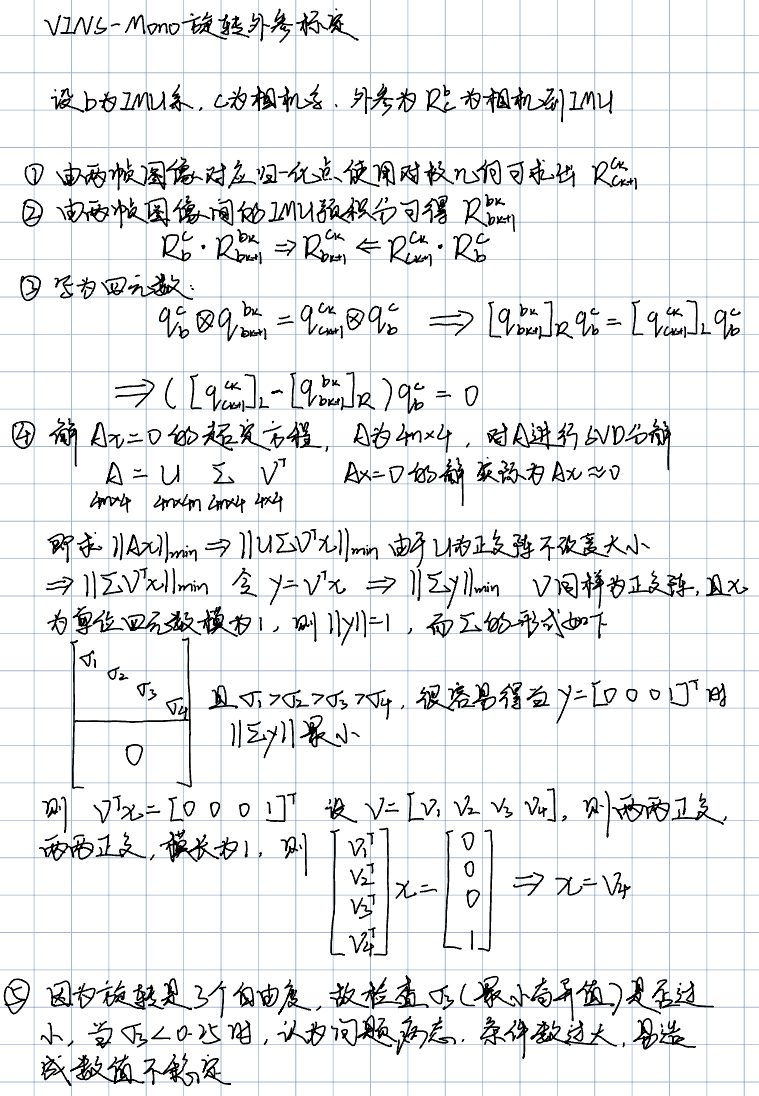 VINS-Mono旋转外参标定
设b为IMU系, c为相机系, 外参为 R_c^b 为相机到IMU
① 由两帧图像对应归一化点使用对极几何可求出 R_{ck+1}^{ck}
② 由两帧图像间的IMU预积分可得 R_{bk+1}^{bk}
R_b^c · R_{bk+1}^{bk} ⇒ R_{bk+1}^{ck} ⇐ R_{ck+1}^{ck} · R_b^c
③ 写为四元数:
q_b^c ⊗ q_{bk+1}^{bk} = q_{ck+1}^{ck} ⊗ q_b^c ⟹ [q_{bk+1}^{bk}]_R q_b^c = [q_{ck+1}^{ck}]_L q_b^c
⟹ ([q_{ck+1}^{ck}]_L - [q_{bk+1}^{bk}]_R) q_b^c = 0
④ 解 Ax=0 的超定方程, A为4m×4, 对A进行SVD分解
A = U Σ V^T Ax=0 的解实际为 Ax≈0
4m×4 4m×4m 4m×4 4×4
即求 ||Ax||min ⇒ ||UΣV^Tx||min 由于U为正交阵不改变大小
⇒ ||ΣV^Tx||min 令 y=V^Tx ⇒ ||Σy||min V同样为正交阵, 且x
为单位四元数模为1, 则 ||y||=1, 而Σ的形式如下
[σ1 σ2 σ3 σ4 0] 且σ1>σ2>σ3>σ4, 很容易得当 y=[0 0 0 1]^T 时
||Σy|| 最小
则 V^Tx=[0 0 0 1]^T 设 V=[V1 V2 V3 V4], 则两两正交,
两两正交, 模长为1, 则 [V1^T V2^T V3^T V4^T] x = [0 0 0 1] ⇒ x=V4
⑤ 因为旋转是3个自由度, 故检查σ3(最小奇异值)是否过
小, 当σ3<0.25时, 认为问题病态, 条件数过大, 易造
成数值不稳定